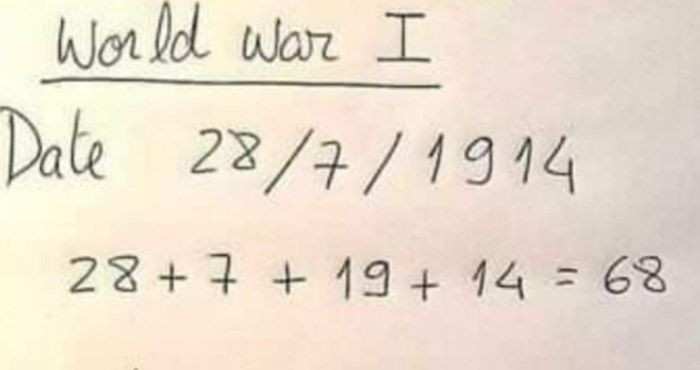 World War I
Date 28/7/1914
28 + 7 + 19 + 14 = 68